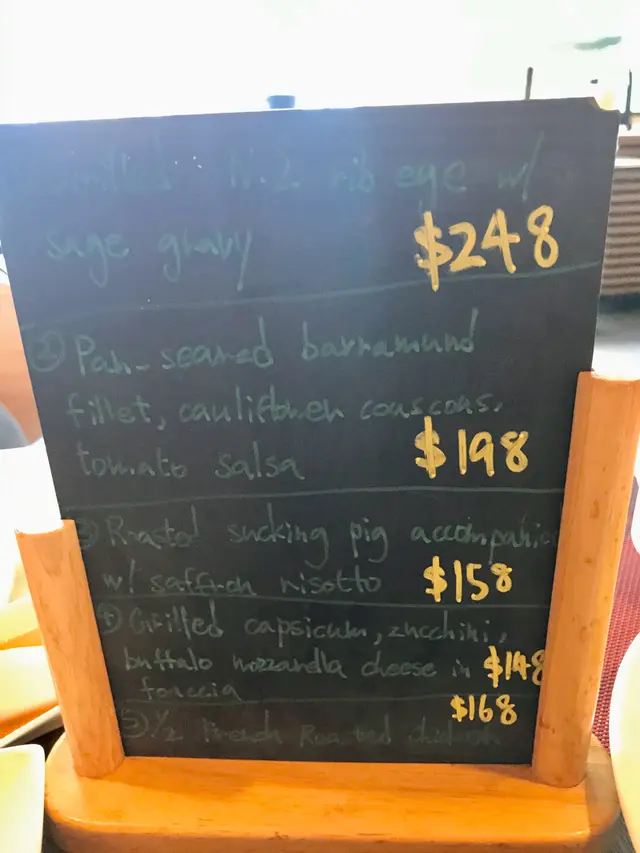 rib eye w/
sage gravy $248
② Pan-seared barramund
fillet, cauliflower couscous,
tomato salsa $198
③ Roasted sucking pig accompanie
w/ saffron risotto $158
④ Grilled capsicum, zucchini,
buffalo mozzarella cheese in $148
foaccia
$168
⑤ ½ French Roasted chicken